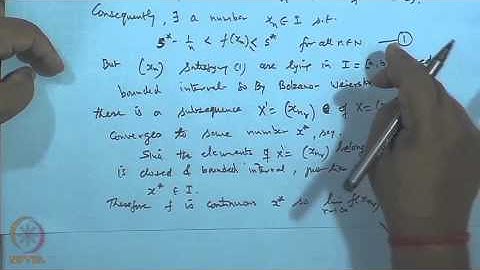 Consequently, ∃ a number xₙ ∈ I s.t.
s* - 1/n < f(xₙ) < s* for all n ∈ N. — ①
But (xₙ) satisfying (1) are lying in I = [a, b]
bounded interval so By Bolzano Weierstrass
there is a subsequence X' = (xₙᵣ) of X =
Converges to some number x*, say.
Since the elements of X' = (xₙᵣ) belong
is closed & bounded interval,
x* ∈ I.
Therefore f is continuous x* so lim f(xₙᵣ)
r→∞